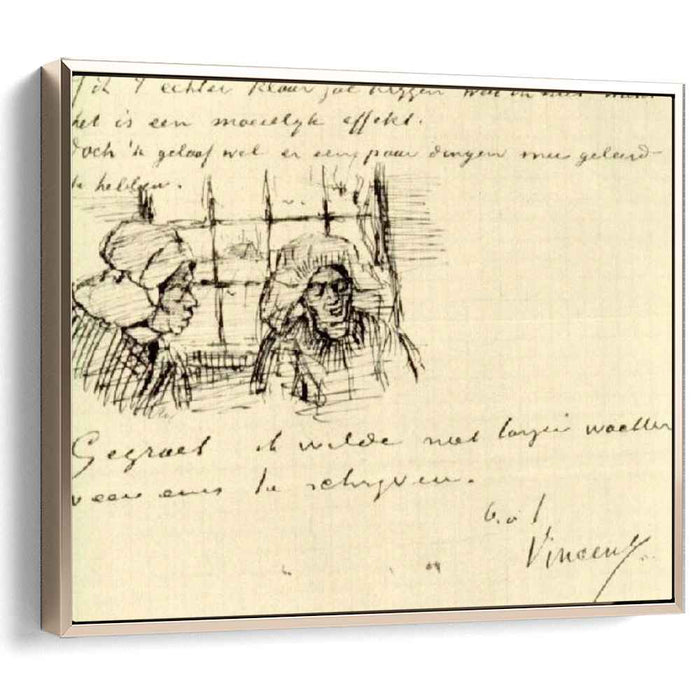 ik 't echter klaar zal krijgen
het is een moeielijk effekt.
Doch 'k geloof wel er een paar dingen mee geleerd
te hebben.
Gegroet ik wilde niet langer wachten
weer eens te schrijven.
t. à t.
Vincent